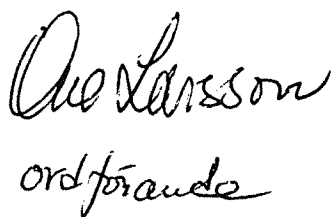 Ove Larsson
ordförande